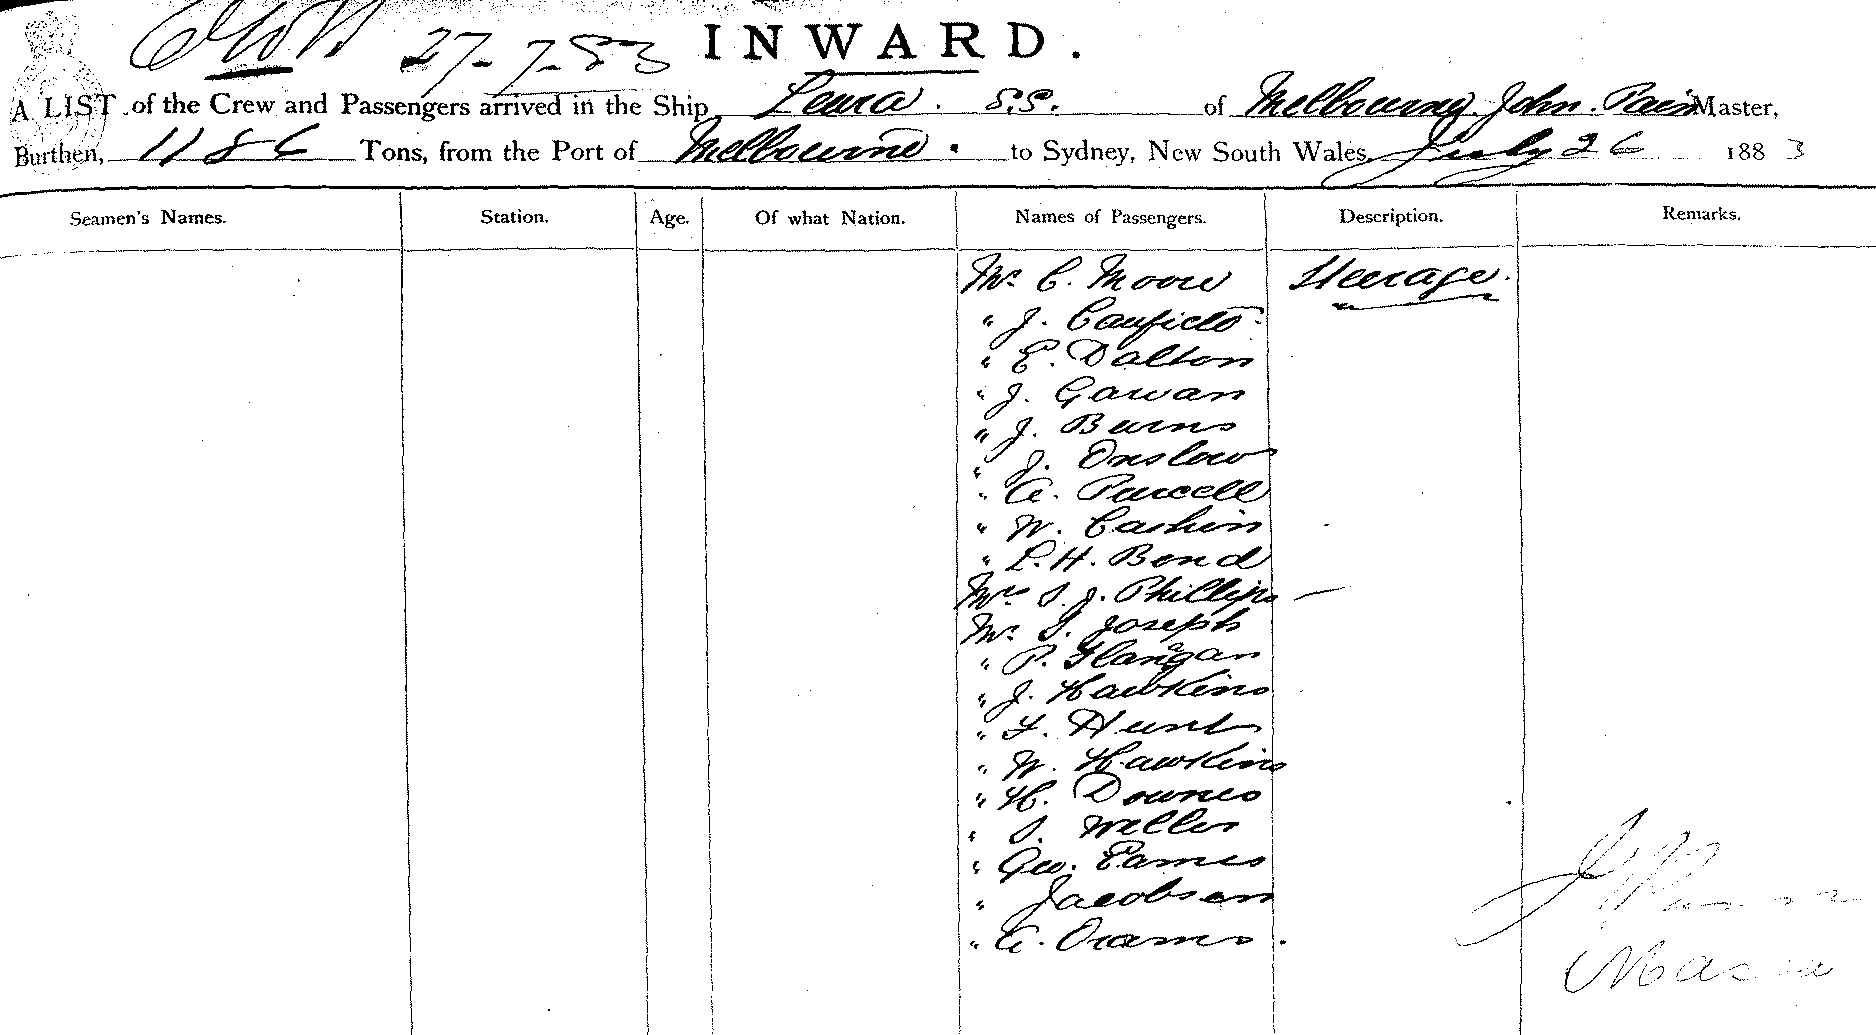 27-7-83 INWARD.
A LIST of the Crew and Passengers arrived in the Ship Leura. S.S. of Melbourne, John. Pain Master,
Burthen, 1186 Tons, from the Port of Melbourne. to Sydney, New South Wales, July 26 1883
Seamen's Names. Station. Age. Of what Nation. Names of Passengers. Description. Remarks.
Mr C. Moore Steerage.
" J. Caufield
" E. Dalton
" J. Gawan
" J. Burns
" J. Onslow
" A. Purcell
" W. Cashin
" L. H. Bond
Mrs S. J. Phillips —
Mr S. Joseph
" P. Flanagan
" J. Hawkins
" F. Hunt
" W. Hawkins
" H. Downes
" S. Weller
" Geo. Eames
" Jacobsen
" A. Orams.